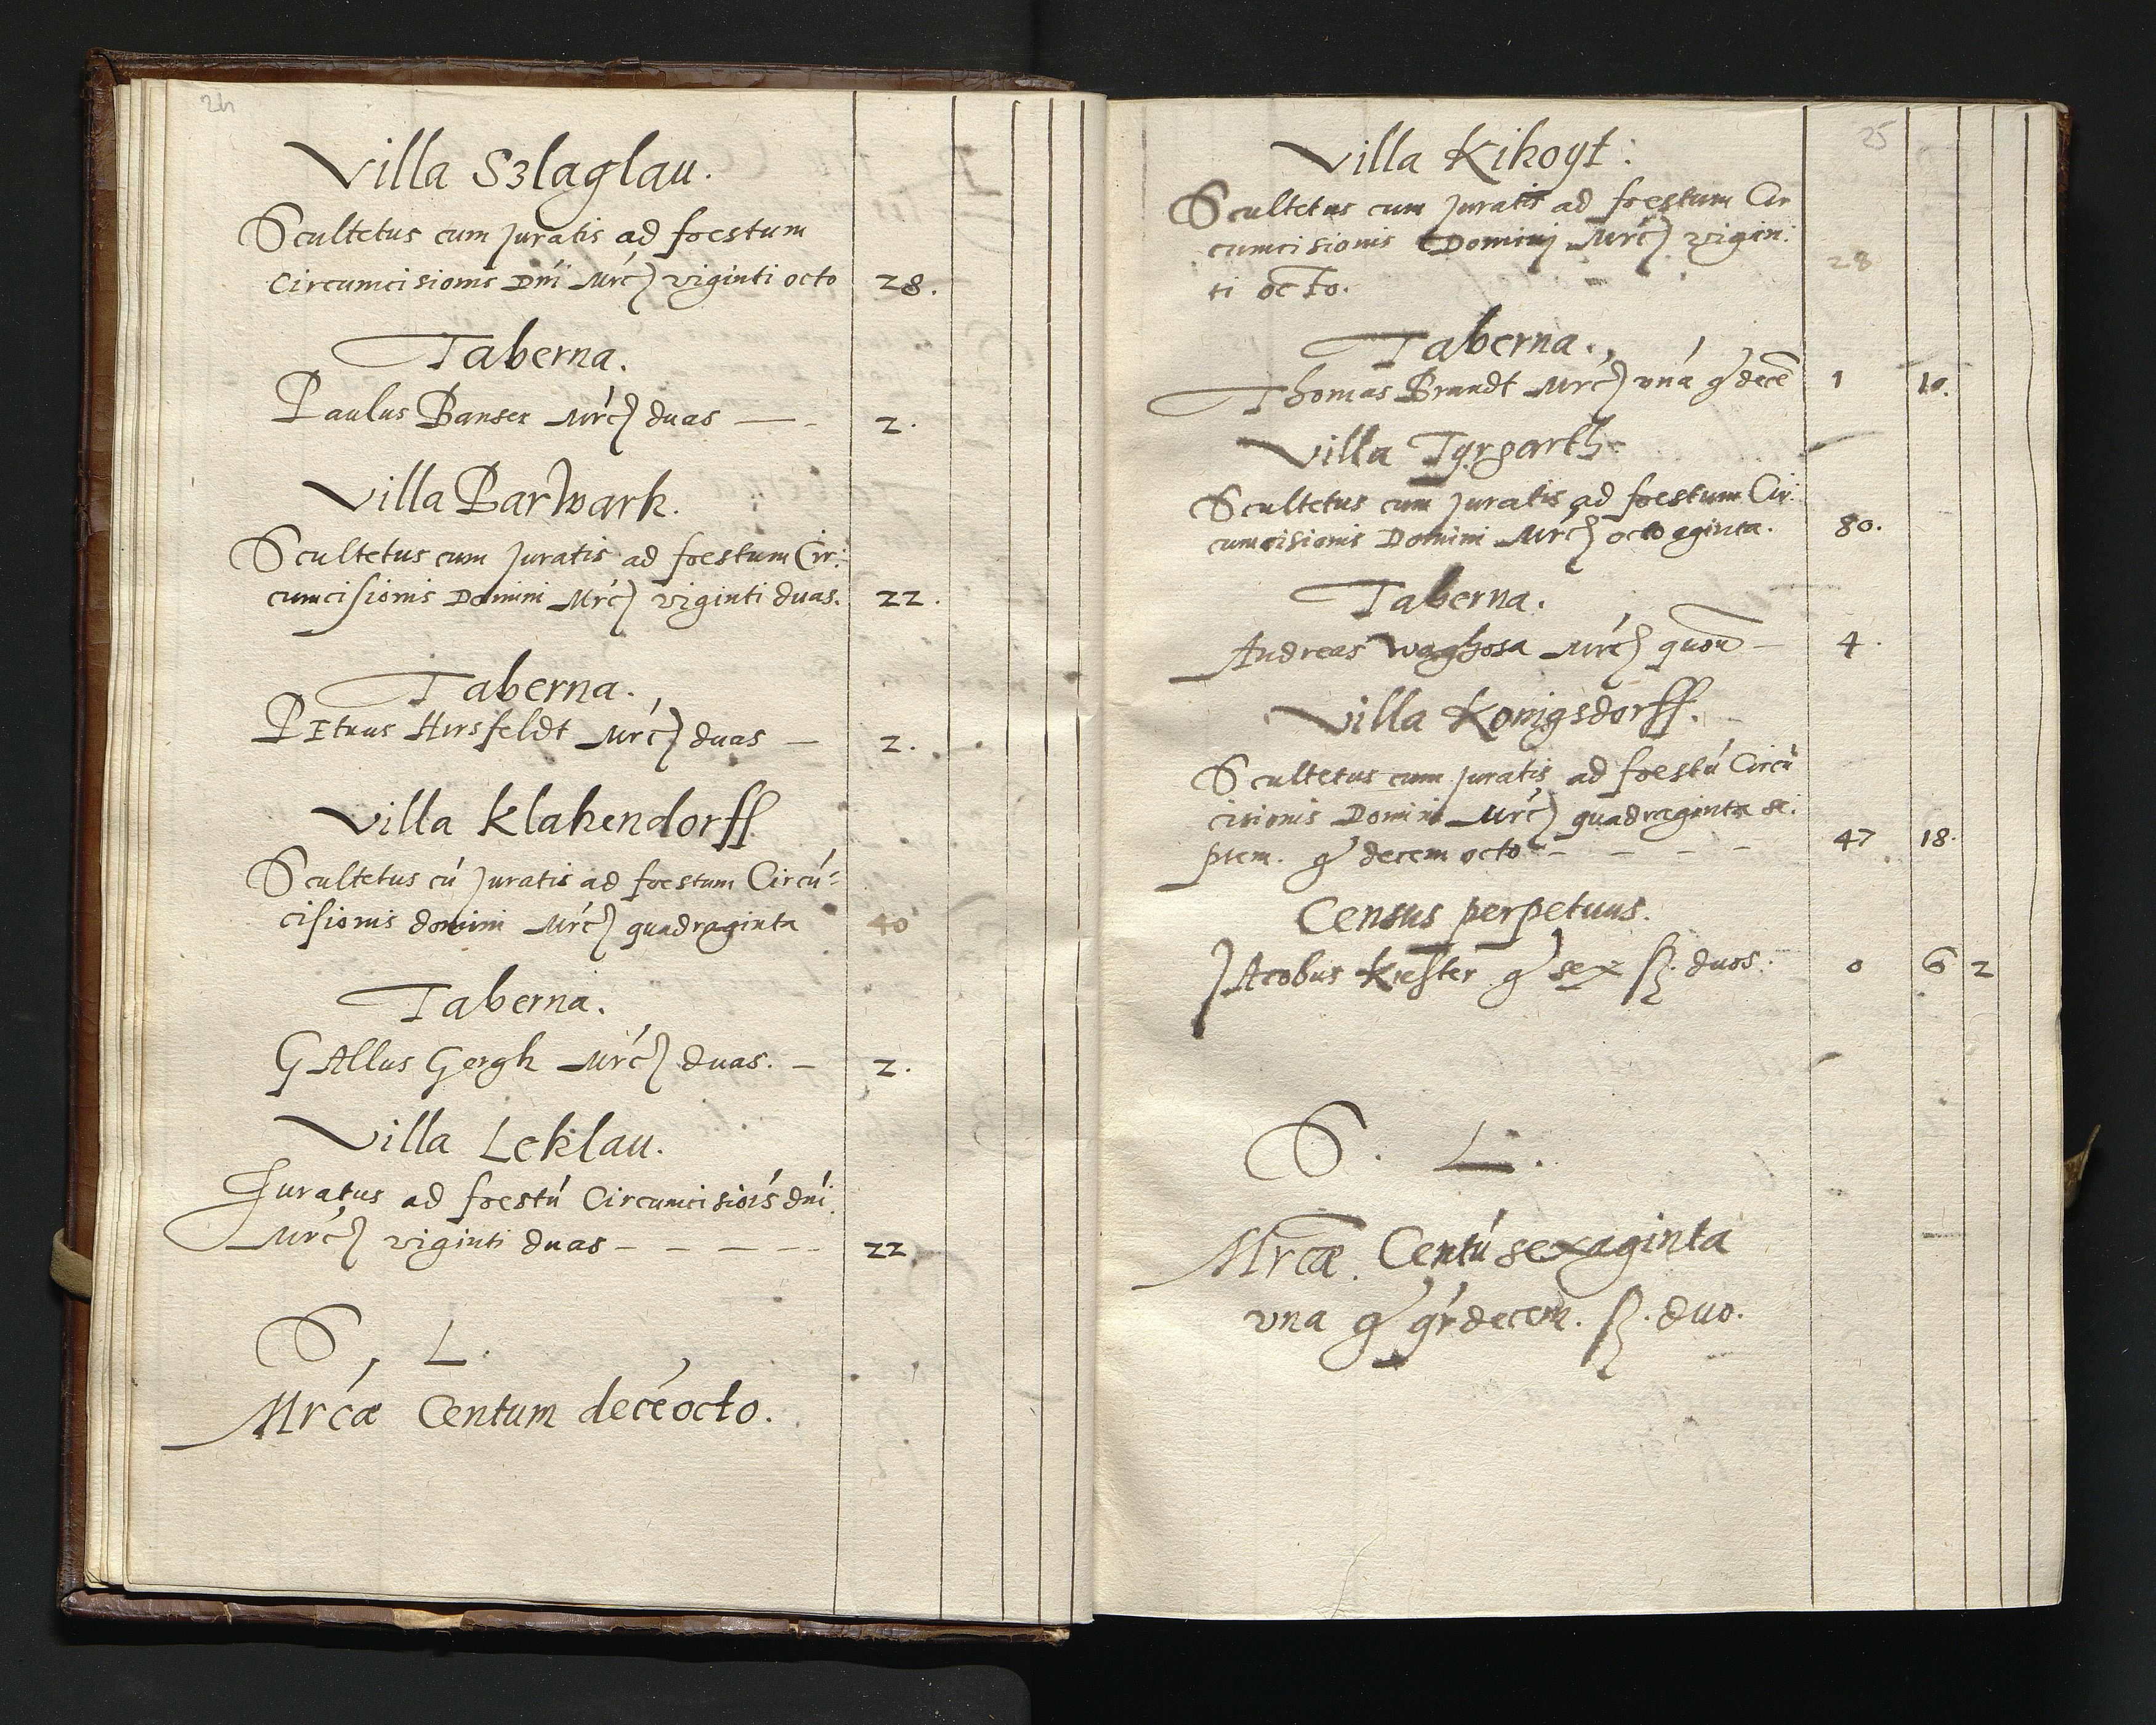 24
Villa Szlaglau.
Scultetus cum Juratis ad foestum
Circumcisionis Dni Mrc viginti octo 28.
Taberna.
Paulus Banser Mrc duas — - 2.
Villa Barwark.
Scultetus cum Juratis ad foestum Cir:
cumcisionis Domini Mrc viginti duas. 22.
Taberna.
PEtrus Hirsfeldt Mrc duas — 2.
Villa Klakendorff
Scultetus cú Juratis ad foestum Circú=
cisionis domini Mrc quadraginta 40
Taberna.
GAllus Gergk Mrc duas. — 2.
Villa Leklau.
Juratus ad foestú Circumcisiois dni
Mrc viginti duas - - - - - 22.
S. L.
Mrcæ Centum decé octo.
25
Villa Kikoyt.
Scultetus cum Juratis ad foestum Cir
cumcisionis Dominj Mrc vigin:
ti octo. 28
Taberna.
Thomas Brandt Mrc vná g decē 1 10.
Villa Tyrgarth
Scultetus cum Juratis ad foestum Cir:
cumcisionis Domini Mrc octoaginta. 80.
Taberna.
Andreas Waghosa Mrc — 4.
Villa Konigsdorff.
Scultetus cum Juratis ad foestú Circú
cisionis Domini Mrc quadraginta se:
ptem. g decem octo - - - - 47 18.
Census perpetuus.
JAcobus Kiester g sex ß. duos. 0 6 2
S. L.
Mrcæ. Centú sexaginta
vna g gr decem. ß. duo.